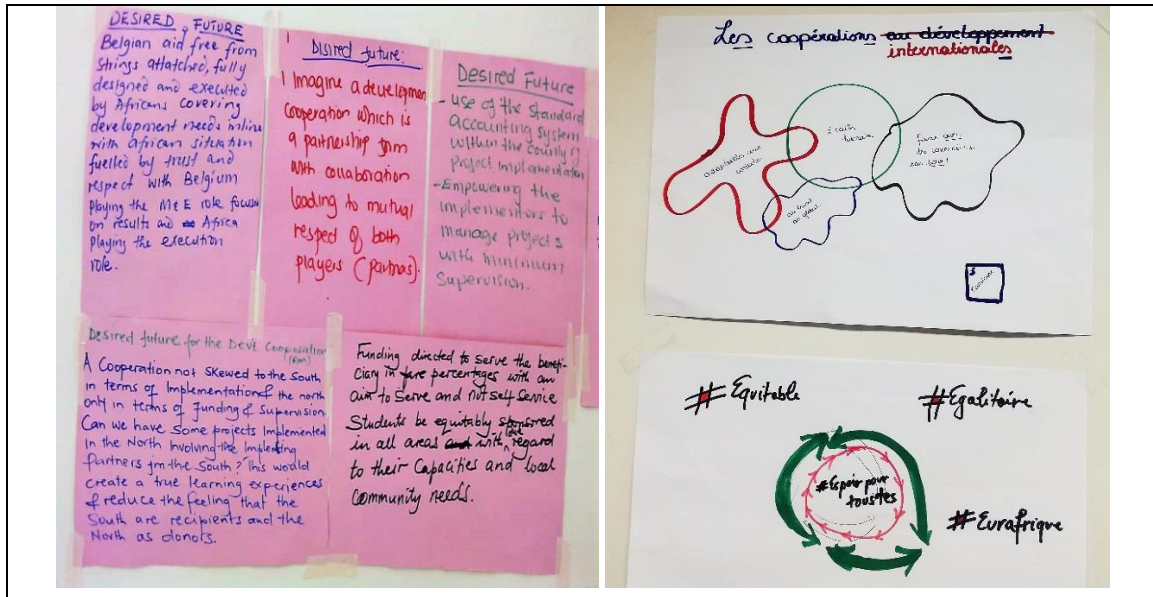 DESIRED FUTURE
Belgian aid free from
strings attatched, fully
designed and executed
by Africans covering
development needs inline
with african situation
fuelled by trust and
respect with Belgium
playing the M&E role focus
on results and Africa
playing the execution
role.
Disired future:
I Imagine a developmen
cooperation which is
a partnership
with collaboration
leading to mutual
respect of both
players (partnas).
Desired Future
- use of the standard
accounting system
within the county of
project implementation
- Empowering the
implementors to
manage projects
with minimum
Supervision.
Desired future for the Devt Cooperation
A Cooperation not skewed to the South
in terms of Implementation & the north
only in terms of funding & Supervision
Can we have some projects Implemented
in the North Involving the
Partners from the South? This would
create a true learning experiences
& reduce the feeling that the
South are recipients and the
North as donots.
Funding directed to serve the benefi-
ciary in percentages with an
aim to serve and not self service
Students be equitably
in all areas with regard
to their Capacities and local
Community needs.
Les coopérations au développement
internationales
# Equitable
# Egalitaire
# Espoir pour
toustes
# Eurafrique